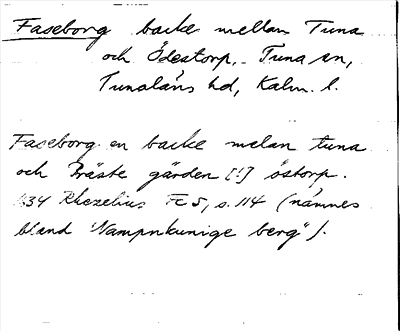 Faseborg backe mellan Tuna
och Ödestorp, Tuna sn,
Tunaläns hd, Kalm. l.
Faseborg en backe melan tuna
och Präste gården [!] östorp.
1634 Rhezelius Fc 5, s. 114 (nämnes
bland "Nampnkunige berg").